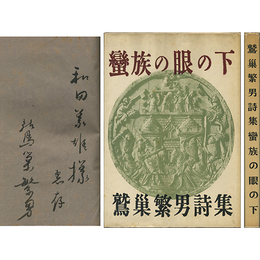 和田茂雄様
恵存
鷲巣繁男
蠻族の眼の下
鷲巣繁男詩集
鷲巣繁男詩集 蠻族の眼の下